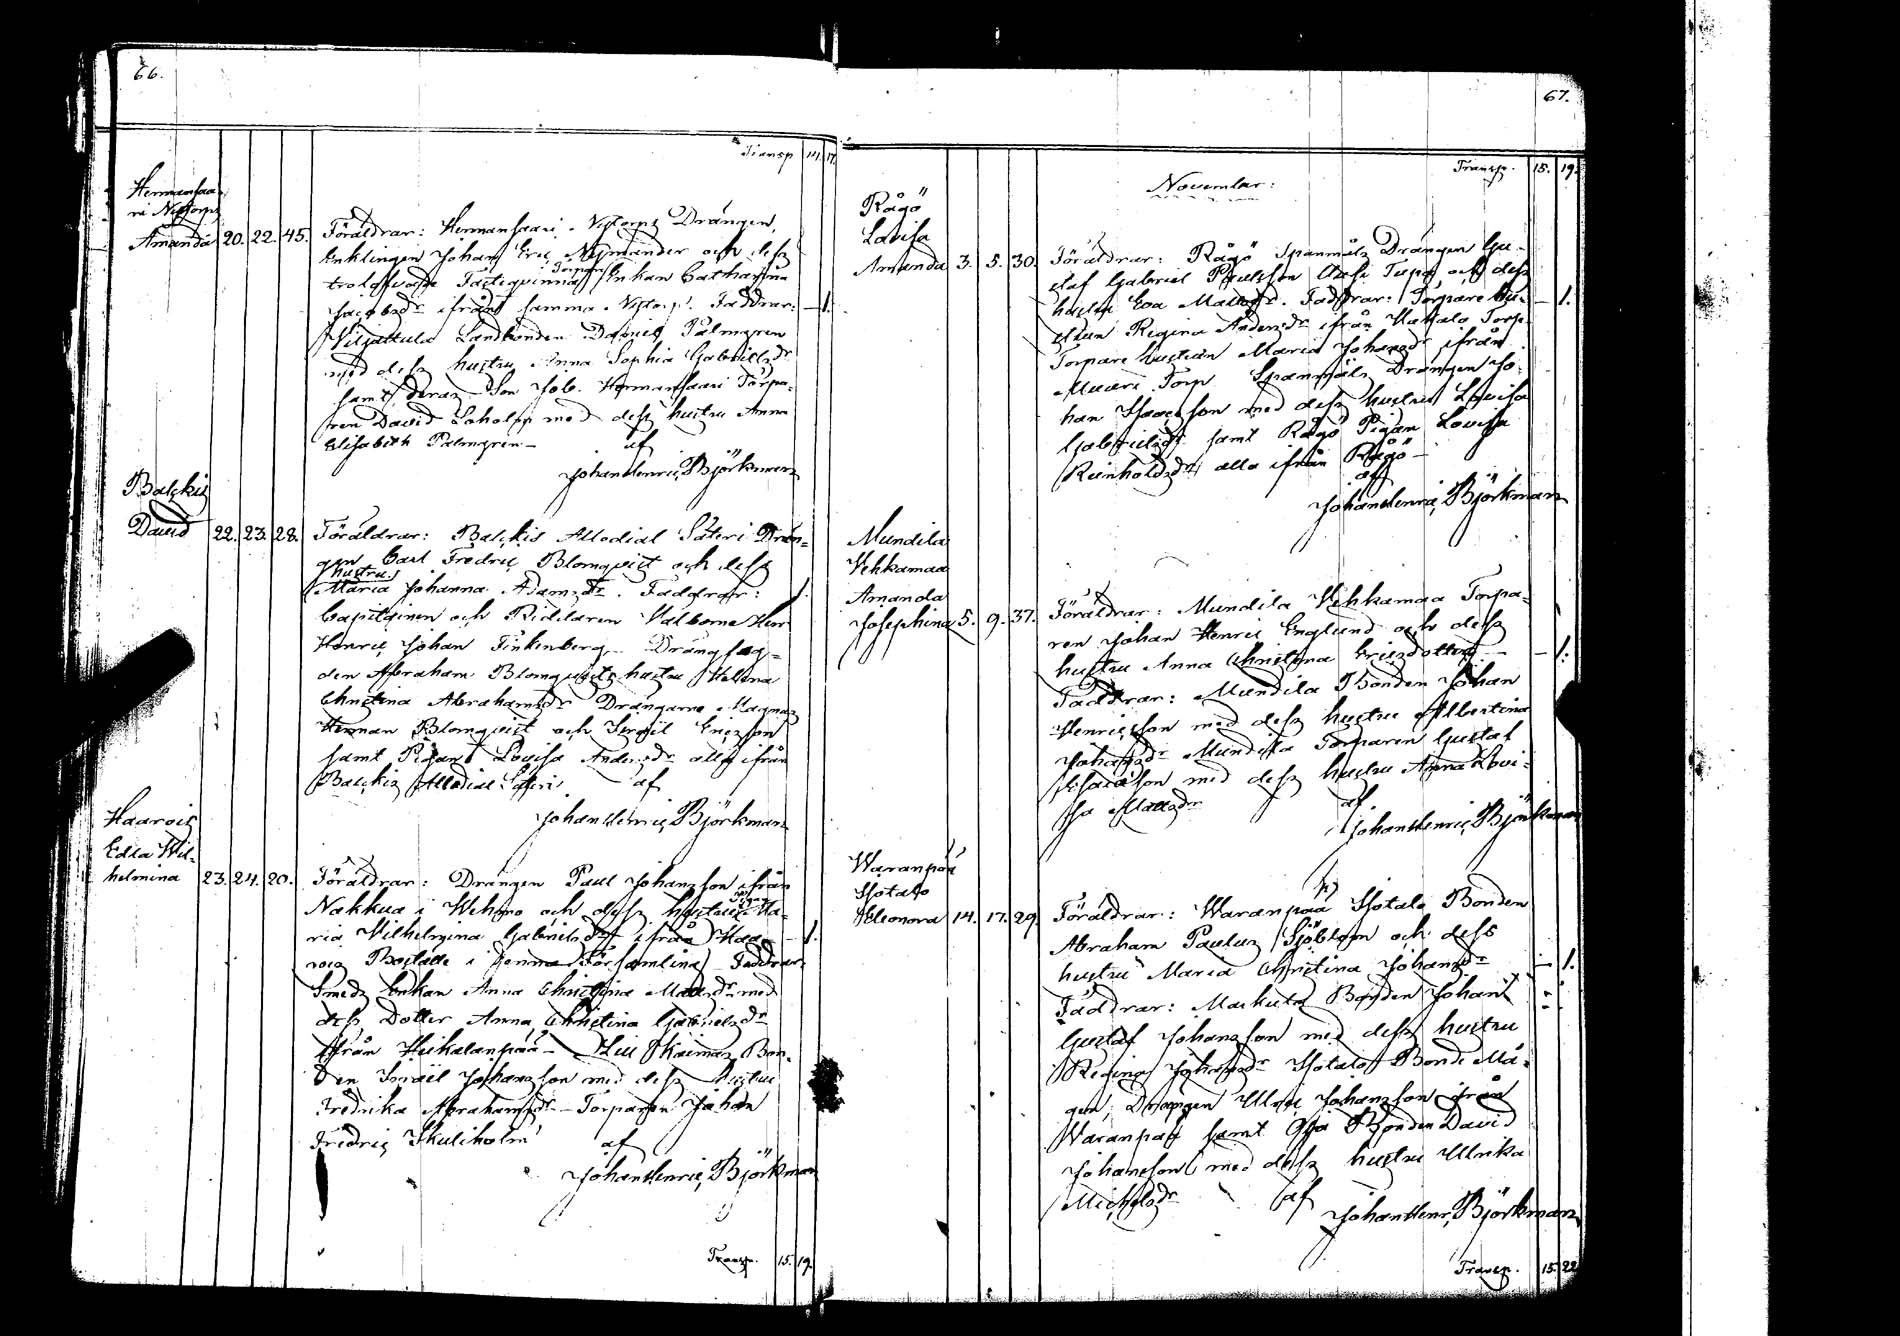 66.
Transp 14. 17.
Hermansaa-
ri Nytorp
Amanda 20. 22. 45. Föräldrar: Hermansaari Nytorps Drängen,
Enklingen Johan Eric Nymander och dess
trolofvade Torpare Enkan Catharina
Jacobsdr ifrån samma Nytorp. Faddrar: — 1.
Viljattula Landbonden Daniel Palmgren
med dess hustru Anna Sophia Gabrielsdr
samt deras Son Job. Hermansaari Torpa-
ren David med dess hustru Anna
Elisabeth Palmgren — af
Johan Henric Björkman
Balckis
David 22. 23. 28. Föräldrar: Balckis Allodial Säteri Drän-
gen Carl Fredric Blomqvist och dess
hustru
Maria Johanna Adamsdr. Faddrar: 1.
Capitainen och Riddaren Välborne Herr
Henric Johan Finkenberg — Drängfog-
den Abraham Blomqvists hustru Helena
Christina Abrahamsdr Drängarne Magnus
Herman Blomqvist och Israël Ericsson
samt Pigan Lovisa Andersdr alla ifrån
Balckis Allodial Säteri af
Johan Henric Björkman
Haarois
Edla Wil-
helmina 23. 24. 20. Föräldrar: Drängen Paul Johansson ifrån
Nakkua i Wehmo och dess hustru Ma-
ria Vilhelmina Gabrielsdr ifrån Haa- — 1.
rois Boställe i denna Församling Faddrar:
Smeds Enkan Anna Christina Mattsdr med
dess Dotter Anna Christina Gabrielsdr
ifrån Huikalanpää — Bon-
den Israël Johansson med dess hustru
Fredrika Abrahamsdr — Torparen Johan
Fredric Skutiholm af
Johan Henric Björkman
Transp. 15. 19.
67.
Transp. 15. 19.
November:
Rågö
Lovisa
Amanda 3. 5. 30. Föräldrar: Rågö Spanmåls Drängen Gu-
staf Gabriel Paulsson och dess
hustru Eva Mattsdr. Faddrar: Torpare Hu- — 1.
strun Regina Andersdr ifrån Torp
Torpare hustrun Maria Johansdr ifrån
Muuri Torp Spanmåls Drängen Jo-
han Isacsson med dess hustru Lovisa
Gabrielsdr samt Rågö Pigan Lovisa
Reinholdsdr alla ifrån Rågö —
af
Johan Henric Björkman
Mundila
Vehkamaa
Amanda
Josephina 5. 9. 37. Föräldrar: Mundila Vehkamaa Torpa-
ren Johan Henric Englund och dess
hustru Anna Christina Ericsdotter — 1.
Faddrar: Mundila Bonden Johan
Henricsson med dess hustru Albertina
Johansdr Mundila Torparen Gustaf
Isacsson med dess hustru Anna Lovi-
sa Mattsdr af
Johan Henric Björkman
Waranpää
Isotalo
Eleonora 14. 17. 29. Föräldrar: Waranpää Isotalo Bonden
Abraham Paulus Sjöblom och dess
hustru Maria Christina Johansdr — 1.
Faddrar: Markula Bonden Johan
Gustaf Johansson med dess hustru
Regina Johansdr Isotalo Bonde Må-
gen, Drängen Ulric Johansson ifrån
Waranpää samt Bonden David
Johansson med dess hustru Ulrika
Michelsdr af
Johan Henr, Björkman
Transp. 15. 22